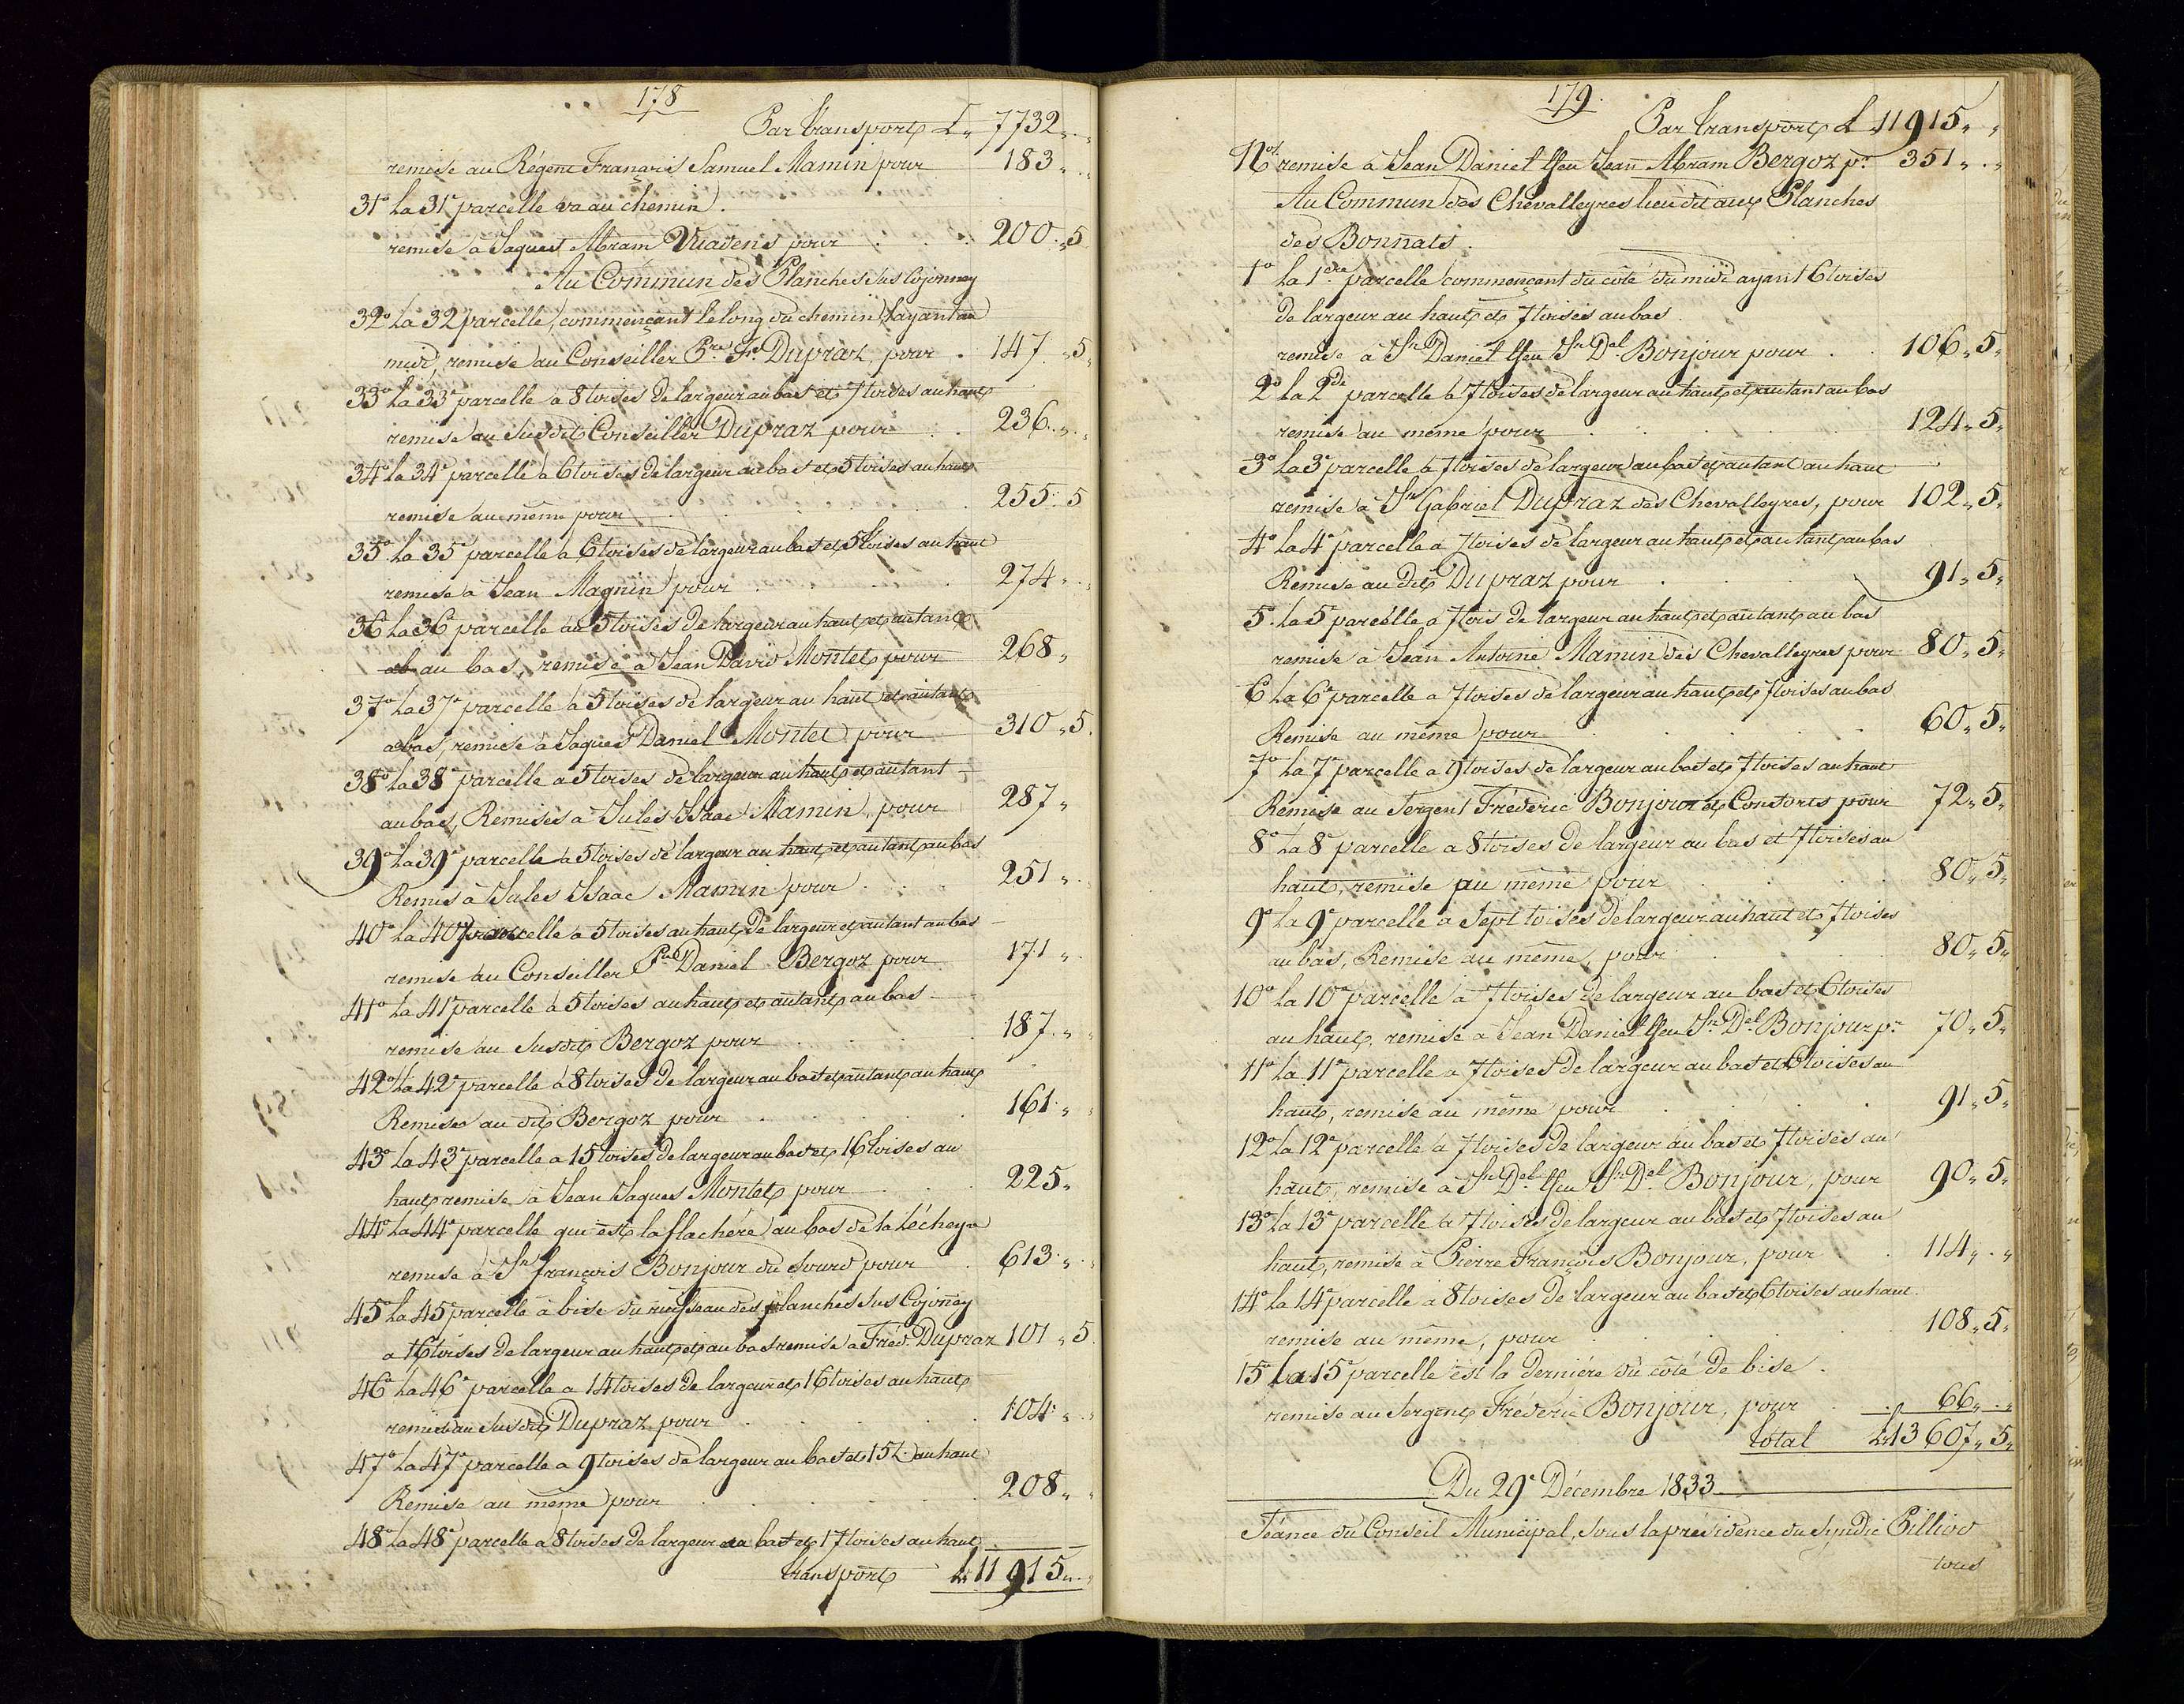 178
Par transport L„ 7732„ . „
remise au Régent François Samuel Mamin pour 183„ . „
31° La 31e parcelle va au chemin.
remise à Jaques Abram Vuadens pour . . . 200.„5
Au Commun des Planches sus Cojonney
32° La 32 parcelle, commençant le long du chemin l'ayant au
midi, remise au Conseiller Pre Fs Dupraz, pour . 147.„5
33° La 33e parcelle a 8 toises de largeur au bas et 7 toises au haut
remise au susdit Conseiller Dupraz pour . . 236.„ . „
34° la 34e parcelle a 6 toises de largeur au bas et 5 toises au haut
remise au même pour . . . 255.5
35° La 35e parcelle a 6 toises de largeur au bas et 5 toises au haut
remise à Jean Magnin pour . . . 274„ . „
36 La 36e parcelle a 5 toises de largeur au haut et autant
au bas, remise à Jean David Montet pour 268„
37° La 37e parcelle a 5 toises de largeur au haut et autant
abas, remise à Jaques Daniel Montet pour 310„5.
38° la 38e parcelle a 5 toises de largeur au haut et autant
au bas, Remises à Jules Isaac Mamin, pour 287„
39° La 39e parcelle a 5 toises de largeur au haut et autant au bas
Remis à Jules Isaac Mamin pour . . . 251„ .
40° La 40e parcelle a 5 toises au haut de largeur et autant au bas
remise au Conseiller Jn Daniel Bergoz pour 171„ .
41° La 41e parcelle a 5 toises au haut et autant au bas
remise au susdit Bergoz pour . . . 187.„ „
42° La 42e parcelle a 8 toises de largeur au bas et autant au haut
Remise au dit Bergoz pour . . . 161.„ „
43° La 43e parcelle a 15 toises de largeur au bas et 16 toises au
haut remise à Jean Jaques Montet pour . . 225„
44° La 44e parcelle qui est la flachére au bas de la Lécheyre
remise à Jn François Bonjour du Sourd pour . 613.„ . „
45° La 45e parcelle à bise du ruisseau des planches sus Cojoney
a 16 toises de largeur au haut et au bas remise à Fréd. Dupraz 101„5.
46° La 46e parcelle a 14 toises de largeur et 16 toises au haut
remise au susdit Dupraz pour . . . 104.„ . „
47° La 47e parcelle a 9 toises de largeur au bas et 15 t. au haut
Remise au même pour . . . 208„ „
48° La 48e parcelle a 8 toises de largeur au bas et 17 toises au haut
Transport L 11915„ . „
179.
Par transport L 11915„ „
remise à Jean Daniel ffeu Jean Abram Bergoz pr 351„ . „
Au Commun des Chevalleyres lieu dit aux Planches
des Bonnats.
1° La 1ere parcelle commençant du côté du midi ayant 6 toises
de largeur au haut et 7 toises au bas.
remise à Jn Daniel ffeu Jn Del Bonjour pour . . 106„5„
2° La 2de parcelle a 7 toises de largeur au haut et autant au bas
remise au même pour . . . 124„5„
3° La 3e parcelle a 7 toises de largeur au bas et autant au haut
remise à Jn Gabriel Dupraz des Chevalleyres, pour 102„5„
4° La 4e parcelle a 7 toises de largeur au haut et autant au bas
Remise au dit Dupraz pour . . . 91„5„
5. La 5 parcelle a 7 tois de largeur au haut et autant au bas
remise à Jean Antoine Mamin des Chevalleyres pour 80„5„
6 La 6e parcelle a 7 toises de largeur au haut et 7 toises au bas
Remise au même pour . . . 60„5„
7° La 7e parcelle a 9 toises de largeur au bas et 7 toises au haut
Remise au Sergent Fréderic Bonjour et Consorts pour 72„5„
8° La 8e parcelle a 8 toises de largeur au bas et 7 toises au
haut, remise au même pour . . . 80„5„
9° La 9e parcelle a sept toises de largeur au haut et 7 toises
au bas, Remise au même, pour . . . 80„5„
10° La 10e parcelle a 7 toises de largeur au bas et 6 toises
au haut, remise à Jean Daniel ffeu Jn Del Bonjour pr 70„5„
11° La 11e parcelle a 7 toises de largeur au bas et 6 toises au
haut, remise au même pour . . . 91„5„
12° La 12e parcelle a 7 toises de largeur au bas et 7 toises au
haut, remise à Jn Del ffeu Jn Del Bonjour, pour 90„5„
13° La 13e parcelle a 7 toises de largeur au bas et 7 toises au
haut, remise à Pierre François Bonjour, pour . . 114„ . „
14° La 14e parcelle a 8 toises de largeur au bas et 6 toises au haut.
remise au même, pour . . . 108„5„
15° La 15e parcelle est la derniére du côté de bise.
remise au Sergent Fréderic Bonjour, pour . . 66„ . „
total L 13607„5„
Du 29e Décembre 1833
Séance du Conseil Municipal, sous la présidence du Syndic Pilliod
tous